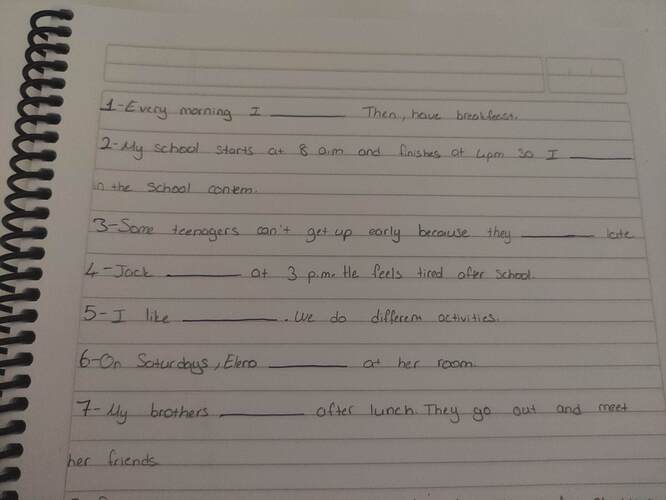 1-Every morning I ______ Then, have breakfast.
2-My school starts at 8 a.m and finishes at 4pm so I ______
in the school contem.
3-Some teenagers can't get up early because they ______ late
4-Jack ______ at 3 p.m. He feels tired after school.
5-I like ______. We do different activities.
6-On Saturdays, Elena ______ at her room.
7-My brothers ______ after lunch. They go out and meet
her friends